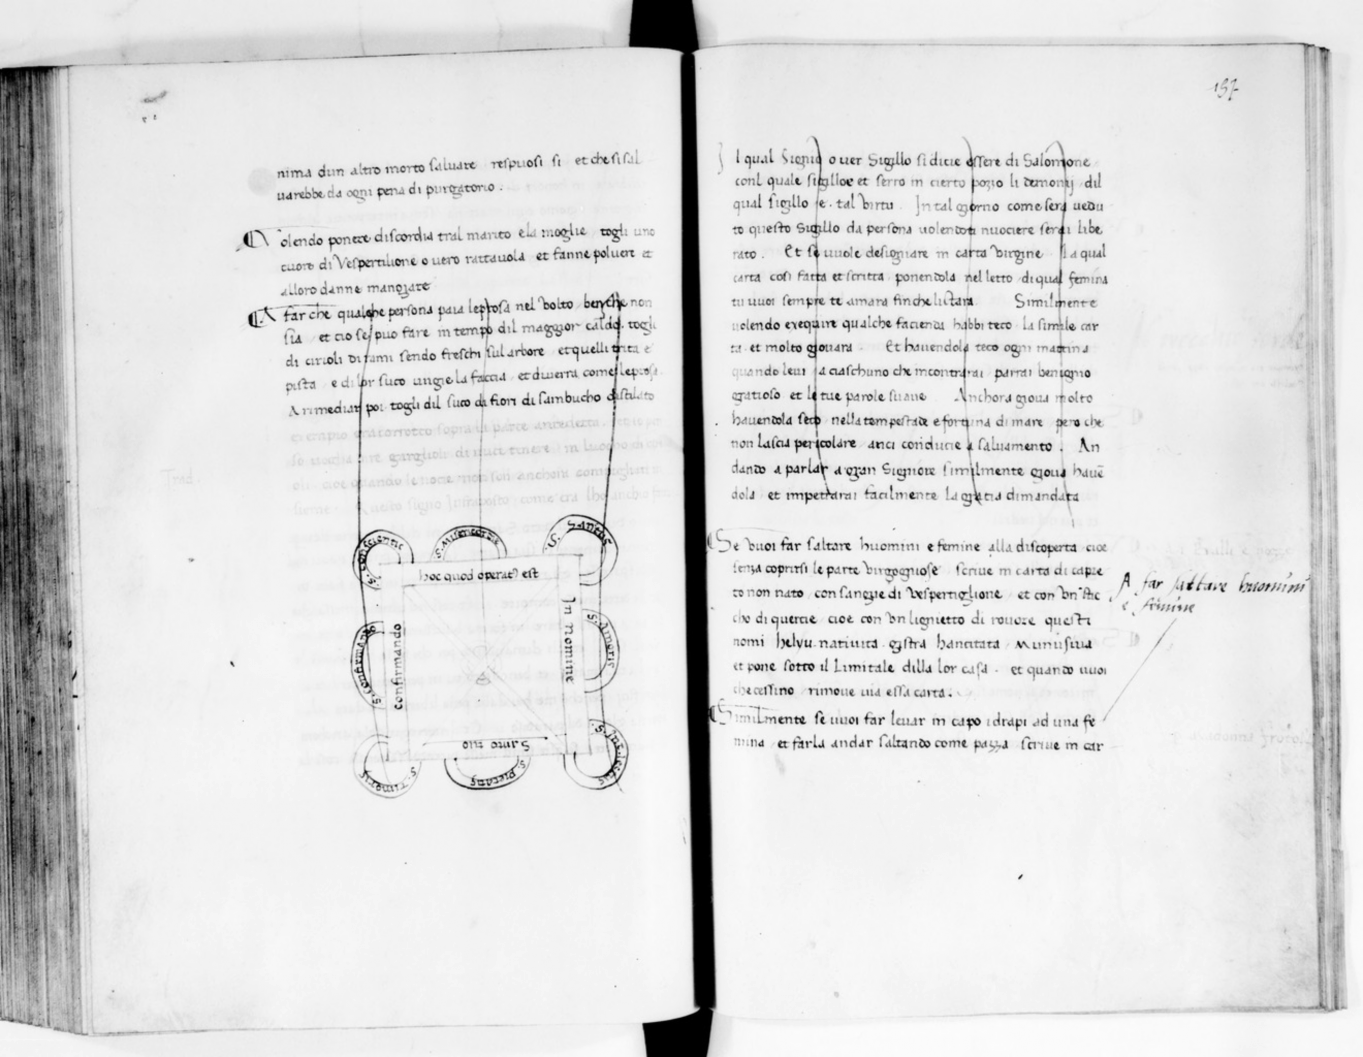 nima dun altro morto salvare respuosi si et che si sal
varebbe da ogni pena di purgatorio.
Volendo ponere discordia tral marito e la moglie togli uno
cuore di Vespertilione o vero rattavola et fanne polvere et
alloro danne mangiare
A far che qualche persona paia leprosa nel volto benche non
sia et cio se puo fare in tempo dil maggior caldo togli
di cirioli di rami sendo freschi sul arbore et quelli trita e
pista e di lor suco ungie la faccia et diverra come leprosa
A rimediar poi togli dil suco di fiori di sambucho distilato
S. conscientie
S. Misericordie
S. Sanctus
hoc quod operat' est
S. confirmans
confirmando
In nomine
S. Amoris
S. Timoris
Sanno nio
S. Pietatis
157
Il qual Signio o ver Sigillo si dicie essere di Salomone
conl quale sigilloe et serro in cierto pozio li demonij dil
qual sigillo e tal virtu In tal giorno come sera vedu
to questo Sigillo da persona volendoti nuociere serai libe
rato. Et se vuole designiare in carta virgine La qual
carta cosi fatta et scritta ponendola nel letto di qual femina
tu vuoi sempre te amara finche li stara Similmente
volendo exequire qualche facienda habbi teco la simile car
ta et molto giovara Et havendola teco ogni matina
quando levi a ciaschuno che incontrarai parrai benignio
gratioso et le tue parole suave Anchora giova molto
havendola seco nella tempestade e fortuna di mare pero che
non lascia pericolare anci conducie a salvamento. An
dando a parlar a gran Signiore similmente giova havē
dola et impetrarai facilmente la gratia dimandata
Se vuoi far saltare huomini e femine alla discoperta cioe
senza coprirsi le parte virgogniose scrive in carta di capre
to non nato con sangue di Vespertiglione et con un stec
cho di quercie cioe con un lignietto di rovore questi
nomi helyu. nativita. gistra hancitata Munusiua
et pone sotto il Limitale dilla lor casa. et quando vuoi
che cessino rimove via essa carta.
A far saltare huomini
e femine
Similmente se vuoi far levar in capo i drapi ad una fe
mina et farla andar saltando come pazza scrive in car